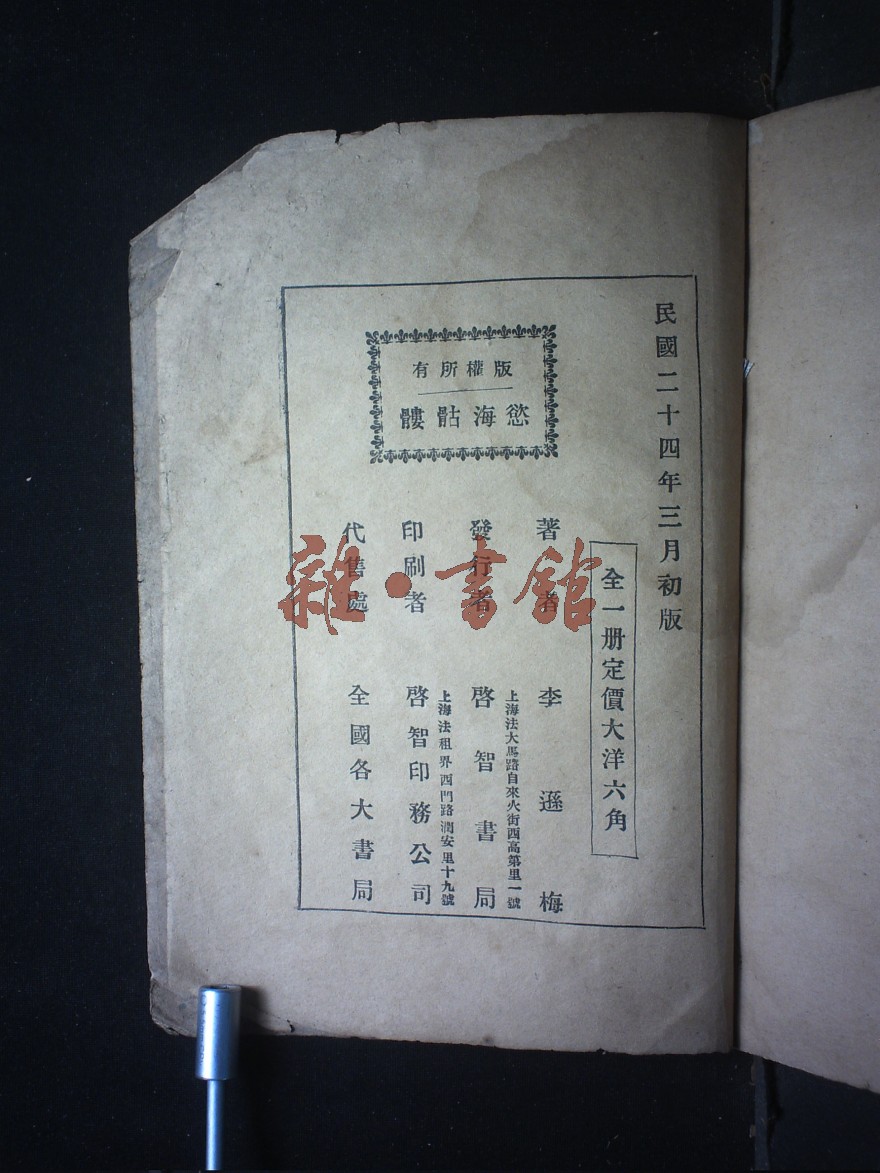 民國二十四年三月初版
全一册定價大洋六角
版權所有
慾海骷髏
著者 李遜梅
發行者 啓智書局
上海法大馬路自來火街西高第里一號
印刷者 啓智印務公司
上海法租界西門路潤安里十九號
代售處 全國各大書局
雜·書館